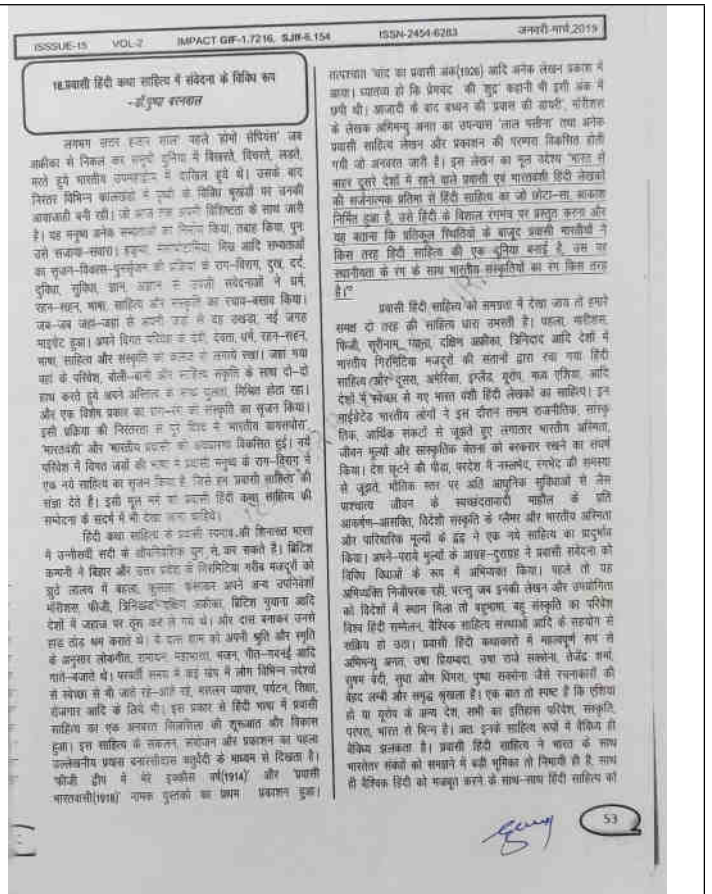 ISSSUE-15 VOL-2 IMPACT GIF-1.7216, SJIF-6.154 ISSN-2454-6283 जनवरी-मार्च,2019
18.प्रवासी हिंदी कथा साहित्य में संवेदना के विविध रूप
-डॉ.पुष्पा बरनवाल
लगभग सत्तर हजार साल पहले 'होमो सेपियंस' जब
अफ्रीका से निकल कर समूची दुनिया में बिखरते, विचरते, लड़ते,
मरते हुये भारतीय उपमहाद्वीप में दाखिल हुये थे। उसके बाद
निरंतर विभिन्न कालखंडों में पृथ्वी के विविध भूखंडों पर उनकी
आवाजाही बनी रही। जो आज तक अपनी विशिष्टता के साथ जारी
है। यह मनुष्य अनेक सभ्यताओं का निर्माण किया, तबाह किया, पुनः
उसे सजाया-संवारा। हड़प्पा, मेसोपोटामिया, मिस्र आदि सभ्यताओं
का सृजन-विकास-पुनर्सृजन की प्रक्रिया के राग-विराग, दुख, दर्द,
दुविधा, सुविधा, ज्ञान, अज्ञान से उपजी संवेदनाओं ने धर्म,
रहन-सहन, भाषा, साहित्य और संस्कृति का रचाव-बसाव किया।
जब-जब जहां-जहा से अपनी जड़ों से वह उखड़ा, नई जगह
माइग्रेट हुआ। अपने विगत परिवेश के देवी, देवता, धर्म, रहन-सहन,
भाषा, साहित्य और संस्कृति को कलेजे से लगाये रखा। जहां गया
वहां के परिवेश, बोली-बानी और साहित्य संस्कृति के साथ दो-दो
हाथ करते हुये अपने अस्तित्व के साथ घुलता, मिश्रित होता रहा।
और एक विशेष प्रकार का राग-रंग की संस्कृति का सृजन किया।
इसी प्रक्रिया की निरंतरता से पूरे विश्व में 'भारतीय डायसपोरा',
'भारतवंशी' और 'भारतीय प्रवासी' की अवधारणा विकसित हुई। नये
परिवेश में विगत जड़ों की भाषा में प्रवासी मनुष्य के राग-विराग ने
एक नये साहित्य का सृजन किया है, जिसे हम 'प्रवासी साहित्य' की
संज्ञा देते हैं। इसी मूल मर्म को प्रवासी हिंदी कथा साहित्य की
सम्वेदना के संदर्भ में भी देखा जाना चाहिये।
हिंदी कथा साहित्य के प्रवासी स्वभाव की शिनाख्त भारत
में उन्नीसवीं सदी के औपनिवेशिक युग से कर सकते हैं। ब्रिटिश
कम्पनी ने बिहार और उत्तर प्रदेश के गिरमिटिया गरीब मजदूरों को
झूठे लालच में बहला, फुसला, फंसाकर अपने अन्य उपनिवेशों
मॉरीशस, फीजी, त्रिनिडाड, दक्षिण अफ्रीका, ब्रिटिश गुयाना आदि
देशों में जहाज पर ठूंस कर ले गये थे। और दास बनाकर उनसे
हाड़ तोड़ श्रम कराते थे। ये दास शाम को अपनी श्रुति और स्मृति
के अनुसार लोकगीत, रामायन, महाभारत, भजन, गीत-गवनई आदि
गाते-बजाते थे। परवर्ती समय में कई खेप में लोग विभिन्न उद्देश्यों
से स्वेच्छा से भी जाते रहे-आते रहे, मसलन व्यापार, पर्यटन, शिक्षा,
रोजगार आदि के लिये भी। इस प्रकार से हिंदी भाषा में प्रवासी
साहित्य का एक अनवरत सिलसिला की शुरूआत और विकास
हुआ। इस साहित्य के संकलन, संयोजन और प्रकाशन का पहला
उल्लेखनीय प्रयास बनारसीदास चतुर्वेदी के माध्यम से दिखता है।
'फीजी द्वीप में मेरे इक्कीस वर्ष(1914)' और 'प्रवासी
भारतवासी(1918)' नामक पुस्तकों का प्रथम प्रकाशन हुआ।
तत्पश्चात 'चांद का प्रवासी अंक(1926) आदि अनेक लेखन प्रकाश में
आया। ध्यातव्य हो कि प्रेमचंद की 'शूद्र' कहानी भी इसी अंक में
छपी थी। आजादी के बाद बच्चन की 'प्रवास की डायरी', मॉरीशस
के लेखक अभिमन्यु अनत का उपन्यास 'लाल पसीना' तथा अनेक
प्रवासी साहित्य लेखन और प्रकाशन की परम्परा विकसित होती
गयी जो अनवरत जारी है। इस लेखन का मूल उद्देश्य 'भारत से
बाहर दूसरे देशों में रहने वाले प्रवासी एवं भारतवंशी हिंदी लेखकों
की सर्जनात्मक प्रतिभा से हिंदी साहित्य का जो छोटा-सा, आकाश
निर्मित हुआ है, उसे हिंदी के विशाल रंगमंच पर प्रस्तुत करना और
यह बताना कि प्रतिकूल स्थितियों के बाजूद प्रवासी भारतीयों ने
किस तरह हिंदी साहित्य की एक दुनिया बनाई है, उस पर
स्थानीयता के रंग के साथ भारतीय संस्कृतियों का रंग किस तरह
है।"
प्रवासी हिंदी साहित्य को समग्रता में देखा जाय तो हमारे
समक्ष दो तरह की साहित्य धारा उभरती है। पहला, मारीशस,
फिजी, सूरीनाम, गयाना, दक्षिण अफ्रीका, त्रिनिदाद आदि देशों में
भारतीय गिरमिटिया मजदूरों की संतानों द्वारा रचा गया हिंदी
साहित्य और दूसरा, अमेरिका, इंग्लैंड, यूरोप, मध्य एशिया, आदि
देशों में स्वेच्छा से गए भारत वंशी हिंदी लेखकों का साहित्य। इन
माईग्रेटेड भारतीय लोगों ने इस दौरान तमाम राजनीतिक, सांस्कृ
तिक, आर्थिक संकटों से जूझते हुए लगातार भारतीय अस्मिता,
जीवन मूल्यों और सांस्कृतिक चेतना को बरकरार रखने का संघर्ष
किया। देश छूटने की पीड़ा, परदेश में नस्लभेद, रंगभेद की समस्या
से जूझते, भौतिक स्तर पर अति आधुनिक सुविधाओं से लैस
पाश्चात्य जीवन के स्वच्छंदतावादी माहौल के प्रति
आकर्षण-आसक्ति, विदेशी संस्कृति के ग्लैमर और भारतीय अस्मिता
और पारिवारिक मूल्यों के द्वंद्व ने एक नये साहित्य का प्रादुर्भाव
किया। अपने-पराये मूल्यों के आग्रह-दुराग्रह ने प्रवासी संवेदना को
विविध विधाओं के रूप में अभिव्यक्त किया। पहले तो यह
अभिव्यक्ति निजीपरक रही, परन्तु जब इनकी लेखन और उपयोगिता
को विदेशों में स्थान मिला तो बहुभाषा, बहु संस्कृति का परिवेश
विश्व हिंदी सम्मेलन, वैश्विक साहित्य संस्थाओं आदि के सहयोग से
सक्रिय हो उठा। प्रवासी हिंदी कथाकारों में महत्वपूर्ण रूप से
अभिमन्यु अनत, उषा प्रियम्वदा, उषा राजे सक्सेना, तेजेंद्र शर्मा,
सुषम वेदी, सुधा ओम धिंगरा, पुष्पा सक्सेना जैसे रचनाकारों की
बेहद लम्बी और समृद्ध श्रृंखला है। एक बात तो स्पष्ट है कि एशिया
हो या यूरोप के अन्य देश, सभी का इतिहास परिवेश, संस्कृति,
परंपरा, भारत से भिन्न है। अतः इनके साहित्य रूपों में वैविध्य ही
वैविध्य झलकता है। प्रवासी हिंदी साहित्य ने भारत के साथ
भारतेतर संकटों को समझाने में बड़ी भूमिका तो निभायी ही है, साथ
ही वैश्विक हिंदी को मजबूत करने के साथ-साथ हिंदी साहित्य को
53